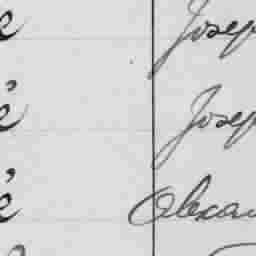 e Josep
é Josep
é Alexan